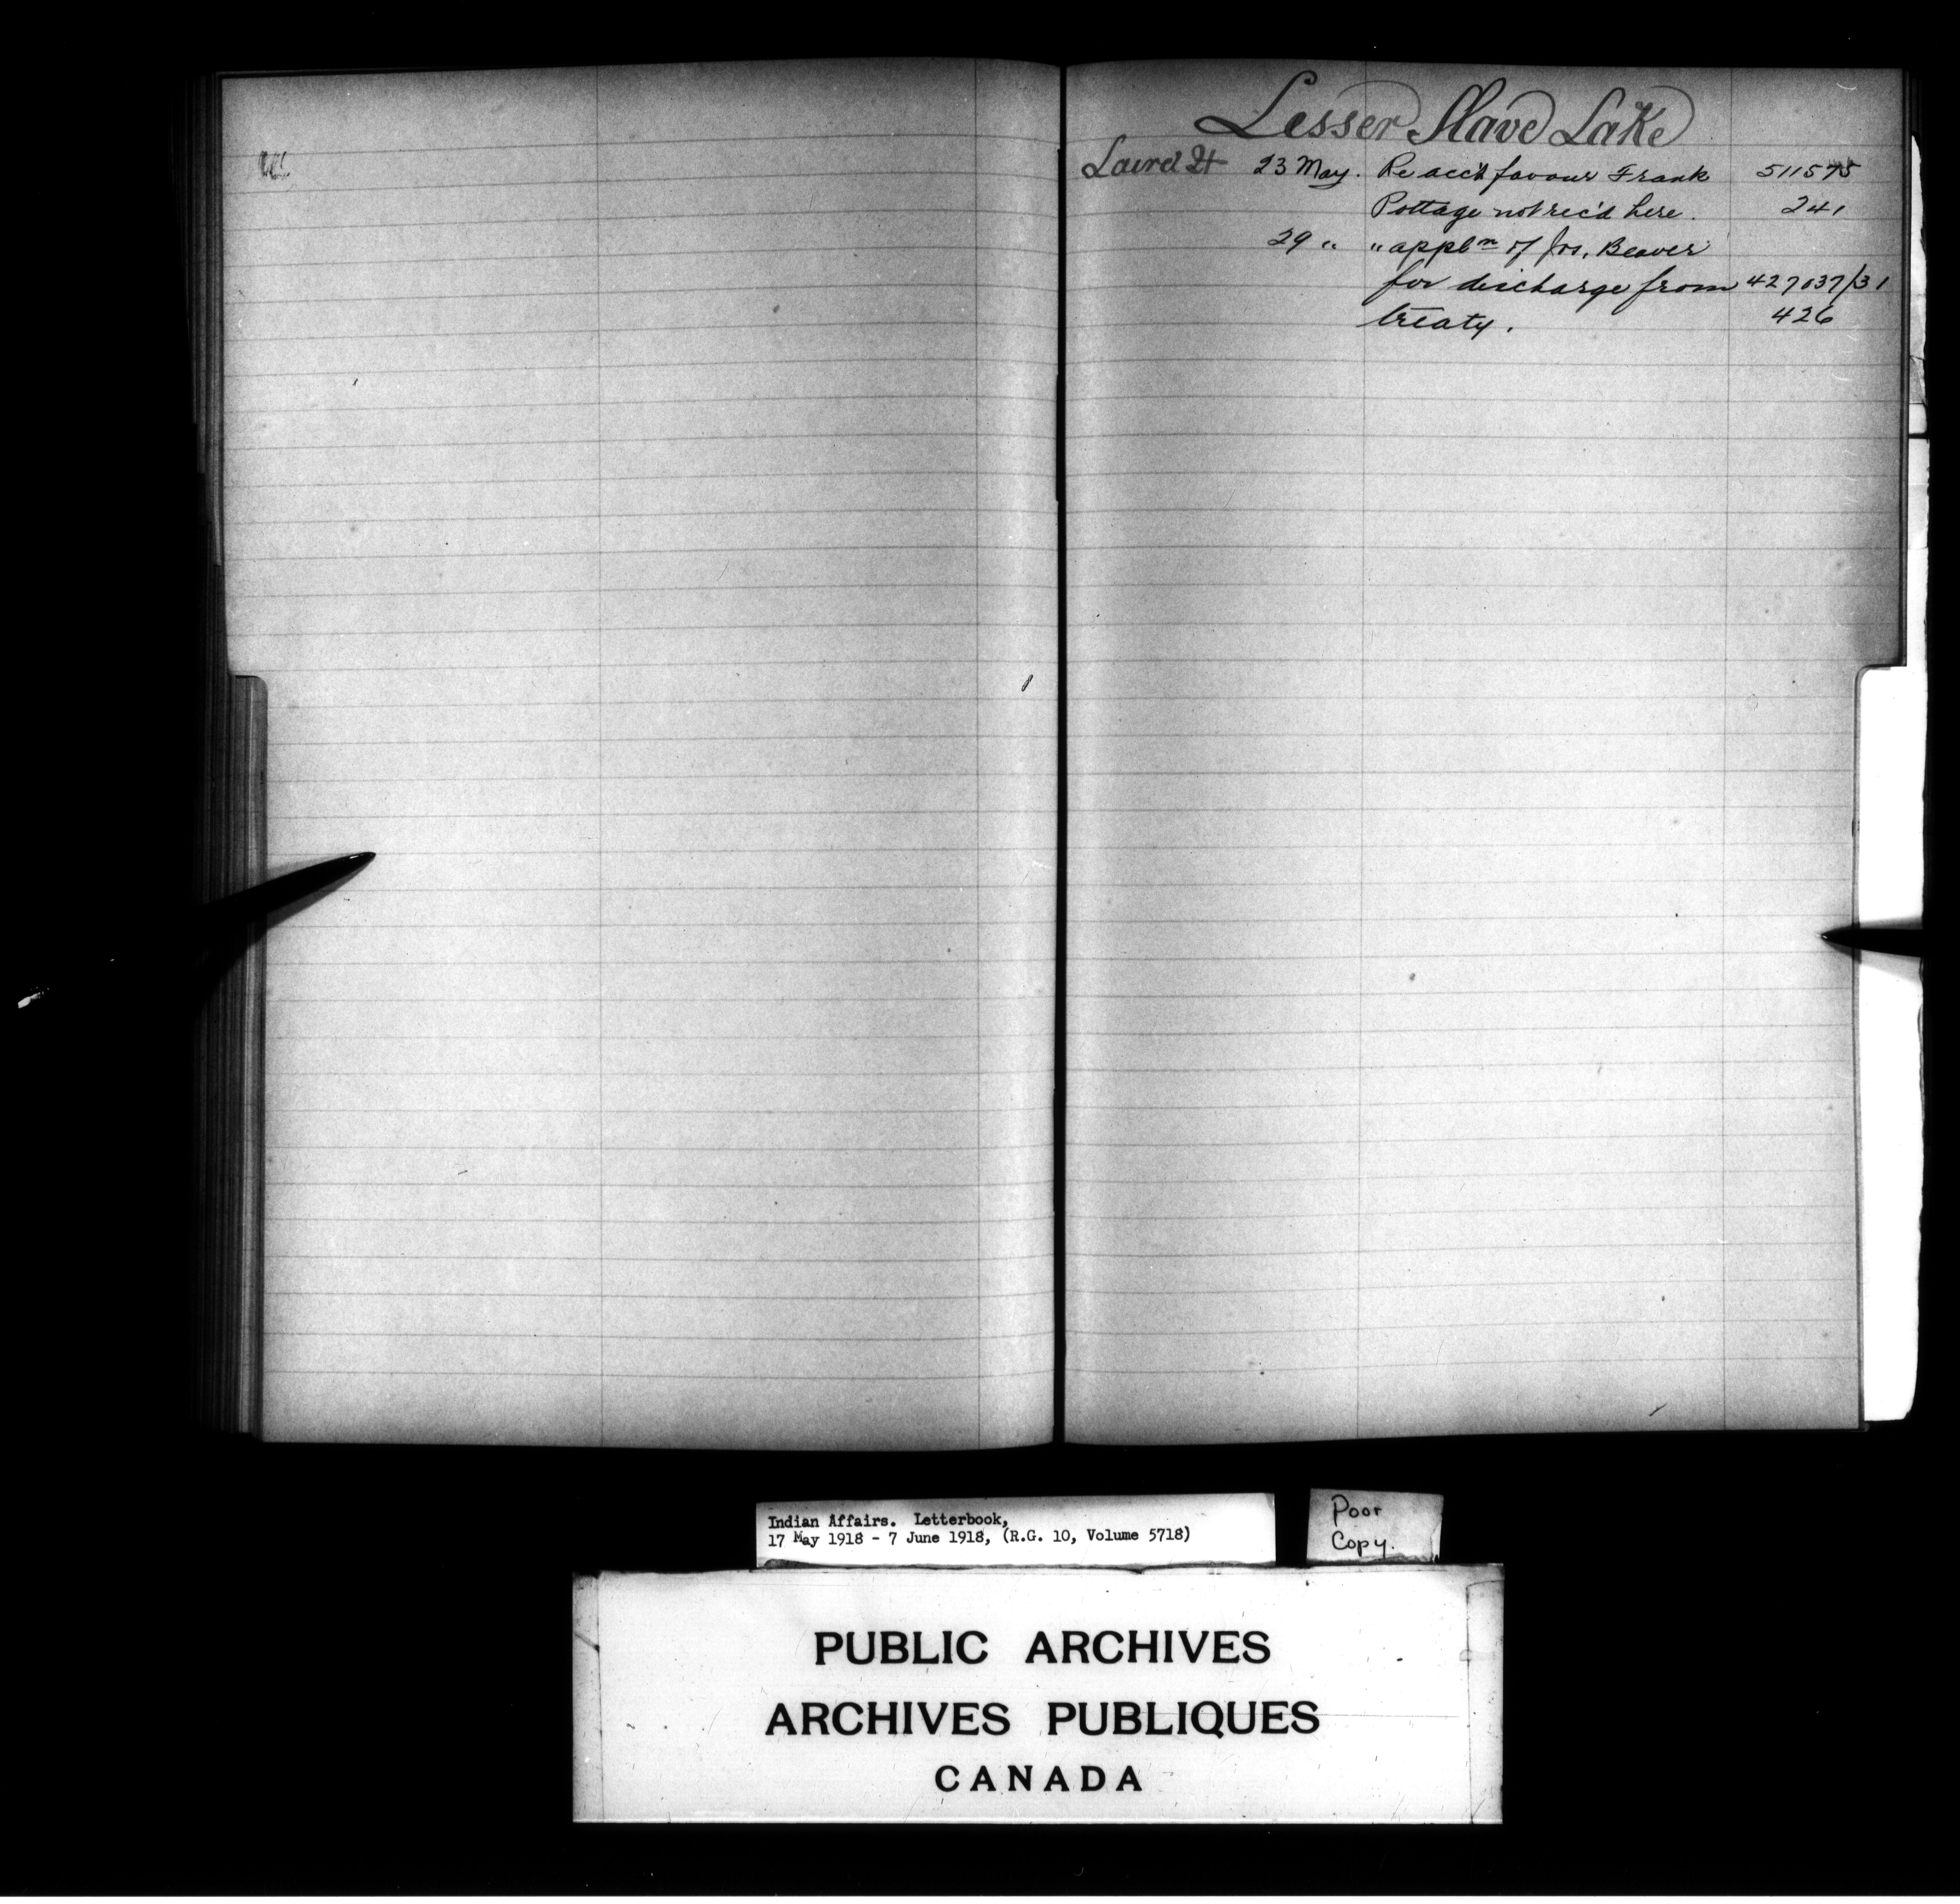 Lesser Slave Lake
Laird H 23 May. Re acc't favour Frank 511575
Pottage not rec'd here. 241
29 " " appl'n of Jos. Beaver
for discharge from 427037/31
treaty. 426
Indian Affairs. Letterbook,
17 May 1918 - 7 June 1918, (R.G. 10, Volume 5718)
Poor
Copy.
PUBLIC ARCHIVES
ARCHIVES PUBLIQUES
CANADA